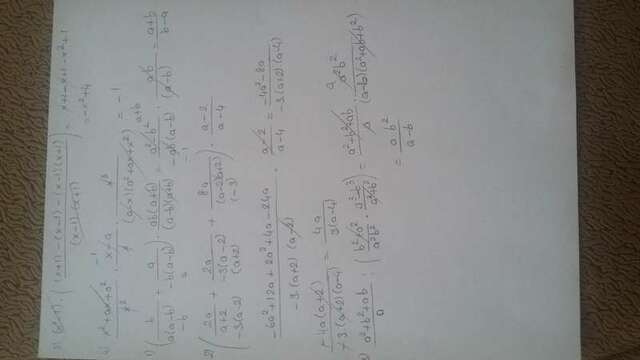 (x²-1) · ( (x+1) - (x-1) - (x-1)(x+1) / (x-1)(x+1) ) = x+1-x+1-x²+1
= -x²+4
x²+ax+a² / x³ · x-a / · x³ / (a-x)(a²+ax+x²) = -1
1) ( b / a(a-b) + a / -b(a-b) ) · ab(a+b) / (a-b)(a+b) = a²-b² / -ab(a-b) · ab / (a-b) = a+b / b-a
-b a -1 a+b
2) ( 2a / a+2 + 2a / -3(a-2) + 8a / (a-2)(a+2) ) · a-2 / a-4
-3(a-2) (a+2) (-3)
-6a²+12a+2a²+4a-24a / -3(a+2)(a-2) · a-2 / a-4 = -4a²-8a / -3(a+2)(a-4)
-4a(a+2) / -3(a+2)(a-4) = 4a / 3(a-4)
3) a²+b²+ab / a : ( b²+a² / a²b² · a³-b³ / a²+b² ) = a²+b²+ab / a · a²b² / (a-b)(a²+ab+b²)
= a b² / a-b